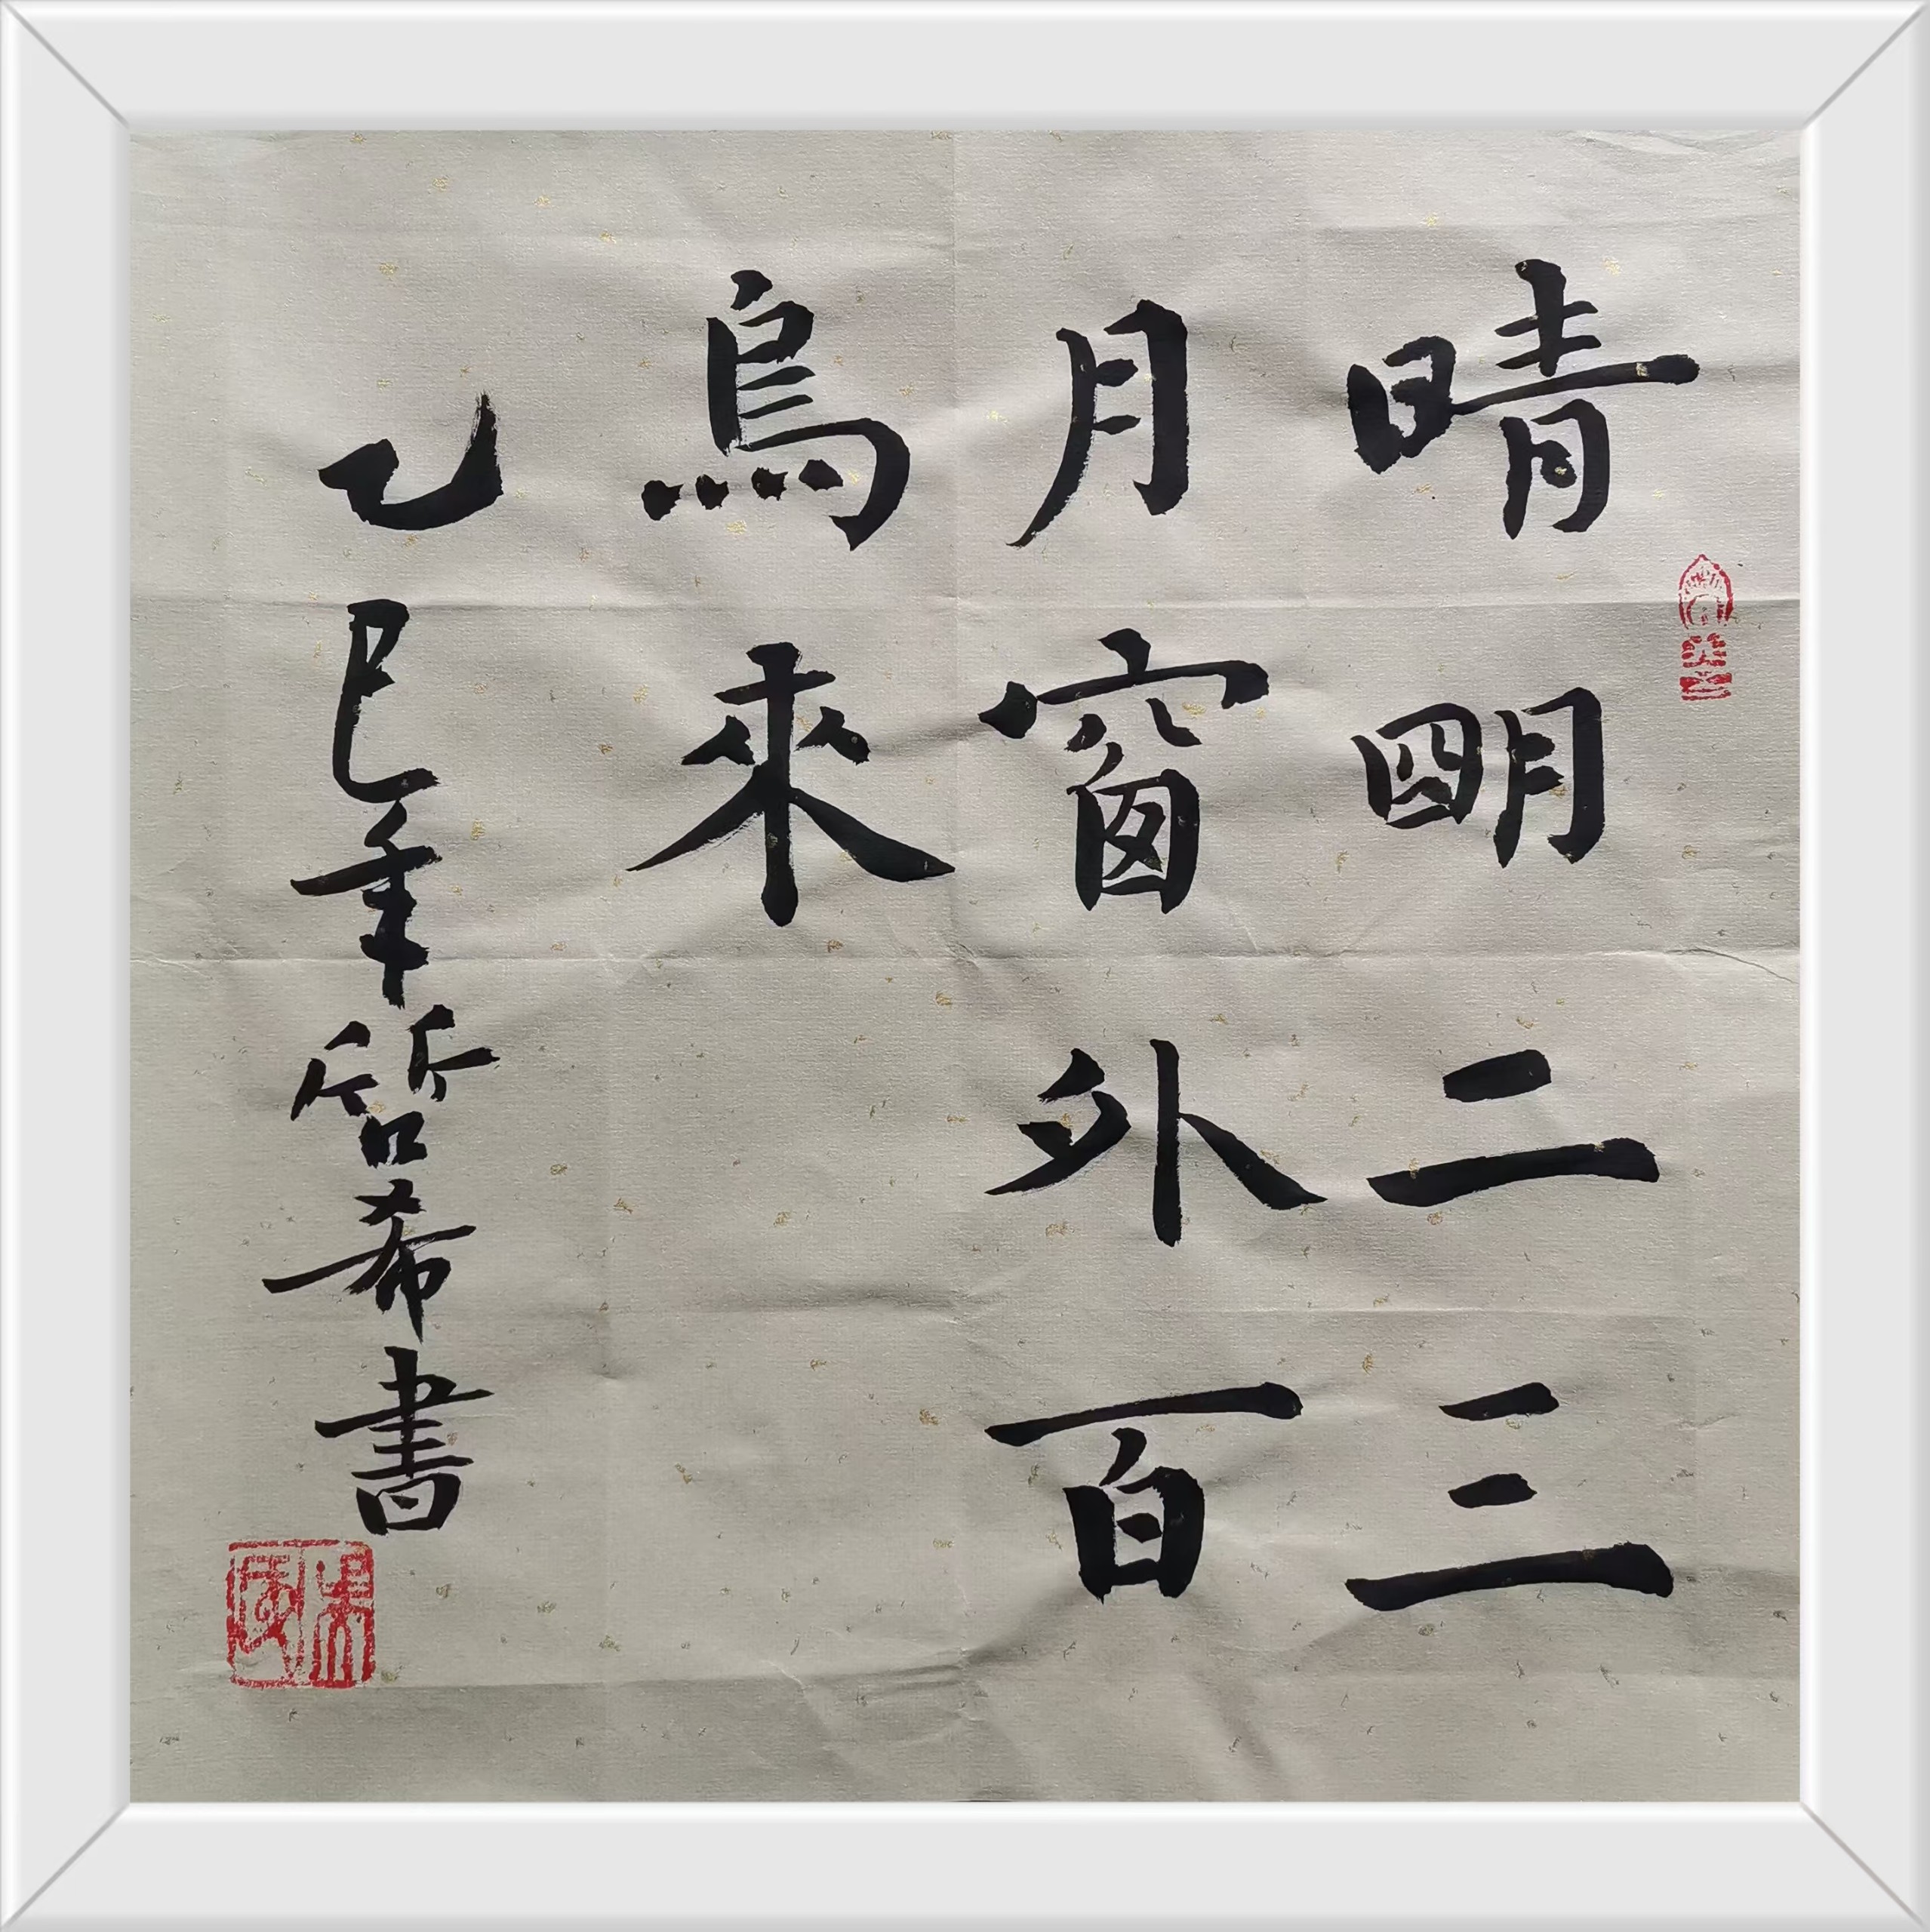 晴明二三
月窗外百
鳥來
乙巳年哲希書